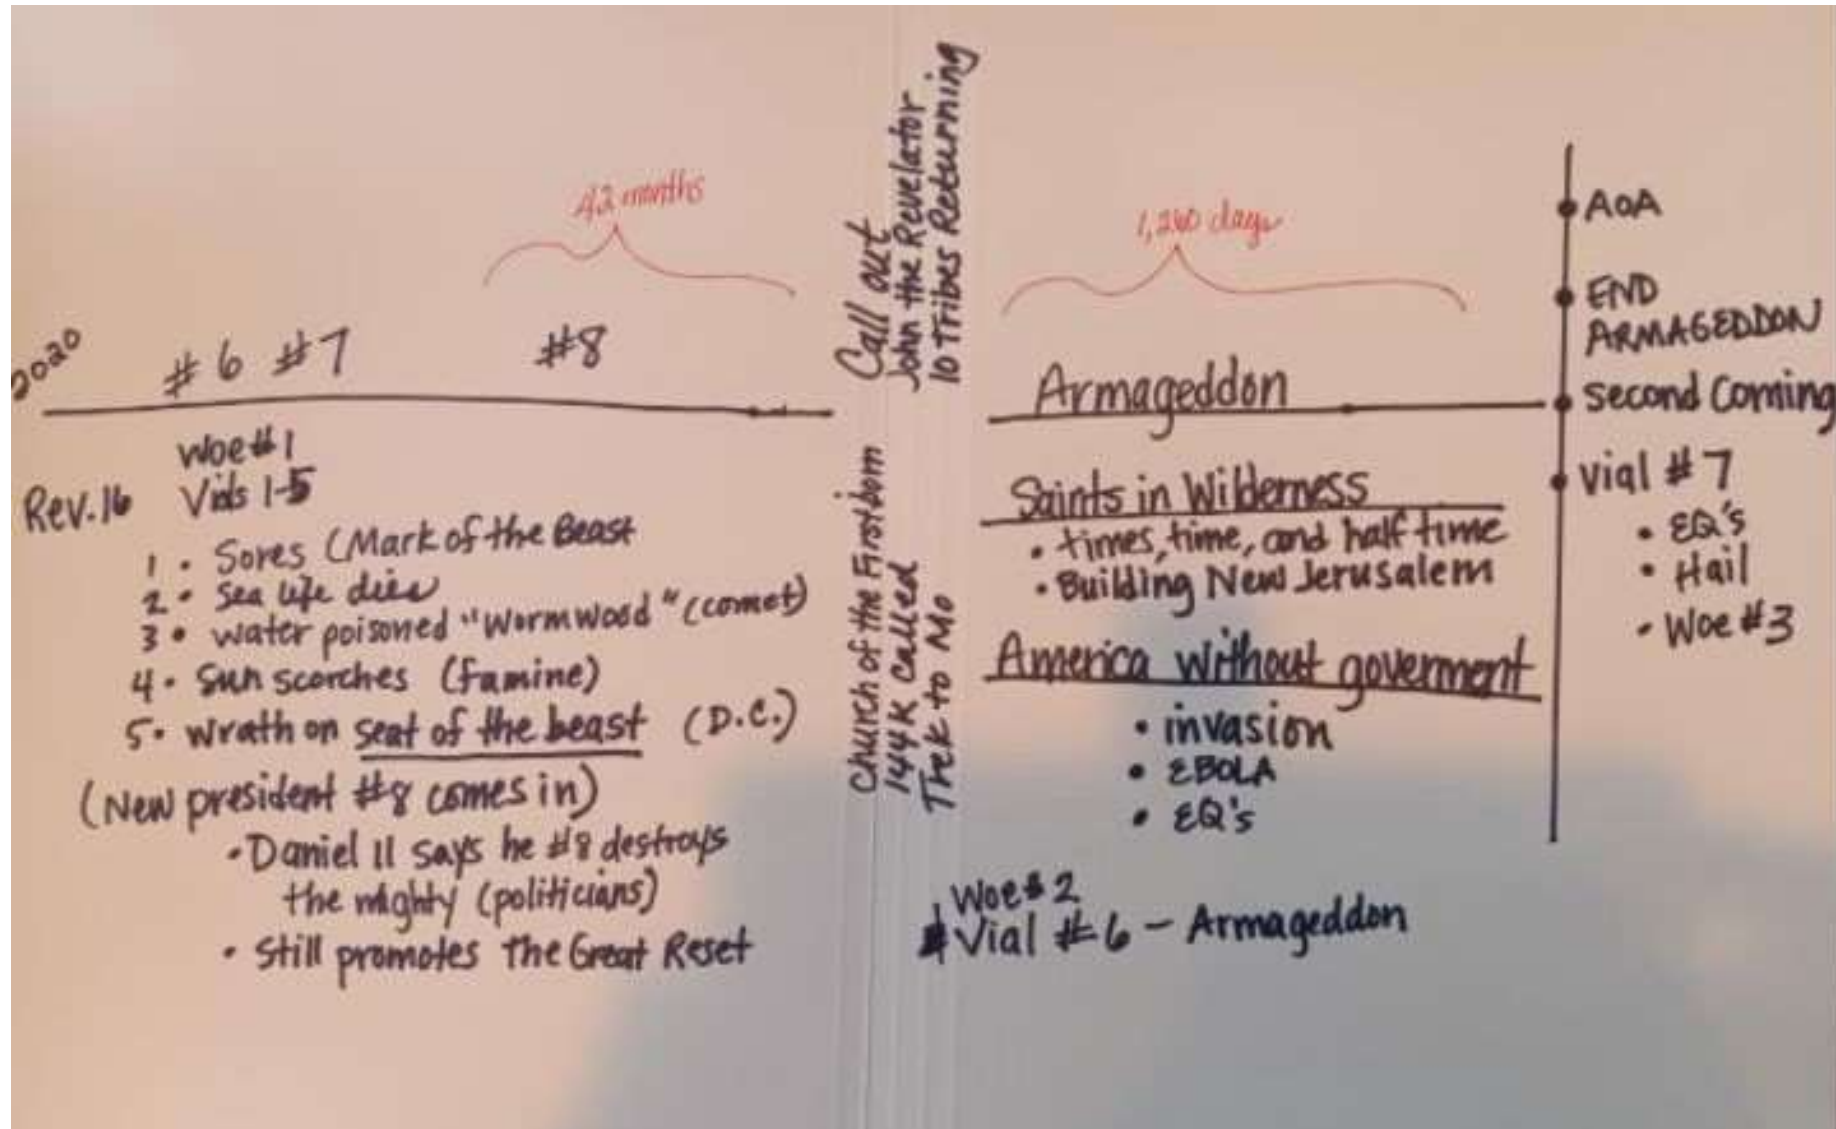 2020
#6 #7
#8
42 months
Woe #1
Rev. 16
Vials 1-5
1 • Sores (Mark of the Beast
2 • Sea life dies
3 • water poisoned "Wormwood" (comet)
4 • Sun scorches (famine)
5 • Wrath on seat of the beast (D.C.)
(New president #8 comes in)
• Daniel 11 says he #8 destroys
the mighty (politicians)
• Still promotes The Great Reset
Call out
John the Revelator
10 Tribes Returning
Church of the Firstborn
144K called
Trek to Mo
1,260 days
Armageddon
Saints in Wilderness
• times, time, and half time
• Building New Jerusalem
America without goverment
• invasion
• EBOLA
• EQ's
Woe # 2
Vial #6 - Armageddon
• AOA
• END
ARMAGEDDON
• Second Coming
• Vial #7
• EQ's
• Hail
• Woe #3